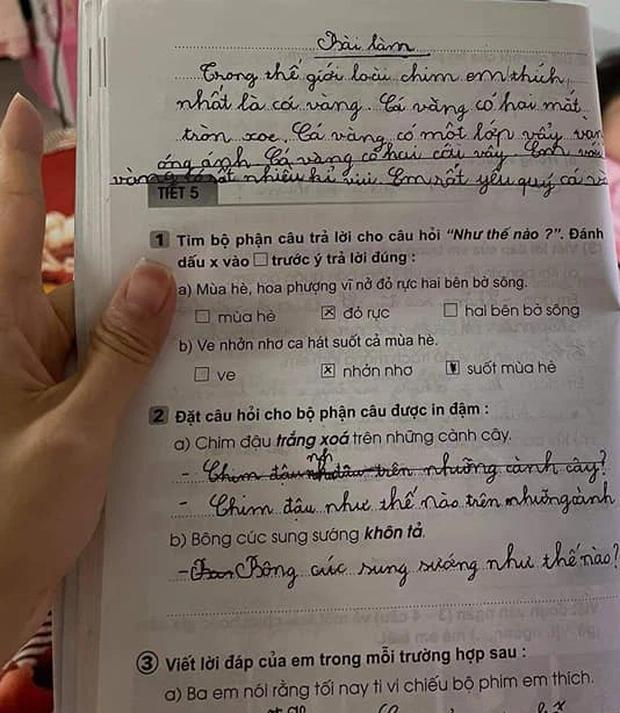 Bài làm
Trong thế giới loài chim em thích
nhất là cá vàng. Cá vàng có hai mắt
tròn xoe, Cá vàng có một lớp vẩy
óng ánh Cá vàng có hai cái vây Em
vàng rất nhiều khi vui. Em rất yêu quý cá
TIẾT 5
1 Tìm bộ phận câu trả lời cho câu hỏi "Như thế nào ?". Đánh
dấu x vào □ trước ý trả lời đúng :
a) Mùa hè, hoa phượng vĩ nở đỏ rực hai bên bờ sông.
□ mùa hè ☒ đỏ rực □ hai bên bờ sông
b) Ve nhởn nhơ ca hát suốt cả mùa hè.
□ ve ☒ nhởn nhơ suốt mùa hè
2 Đặt câu hỏi cho bộ phận câu được in đậm :
a) Chim đậu trắng xoá trên những cành cây.
- Chim đậu trên những cành cây?
- Chim đậu như thế nào trên những cành
b) Bông cúc sung sướng khôn tả.
- Bông cúc sung sướng như thế nào?
3 Viết lời đáp của em trong mỗi trường hợp sau :
a) Ba em nói rằng tối nay ti vi chiếu bộ phim em thích.